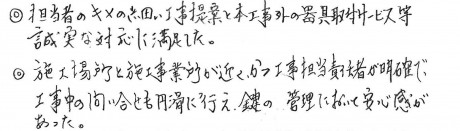 ◎ 担当者のキメの細い工事提案と本工事外の器具取付サービス等
誠実な対応に満足でした。
◎ 施工場所と施工事業所が近く、かつ工事担当責任者が明確で
工事中の問い合せも円滑に行え、鍵の管理において安心感が
あった。